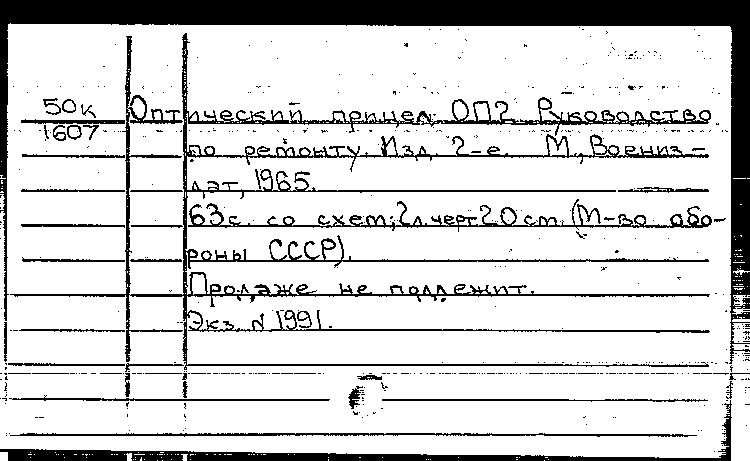 50к Оптический прицел ОП2. Руководство
1607
по ремонту. Изд. 2-е. М., Воениз-
дат, 1965.
63с. со схем; 2л. черт. 20 см. (М-во обо-
роны СССР).
Продаже не подлежит.
Экз. N 1991.